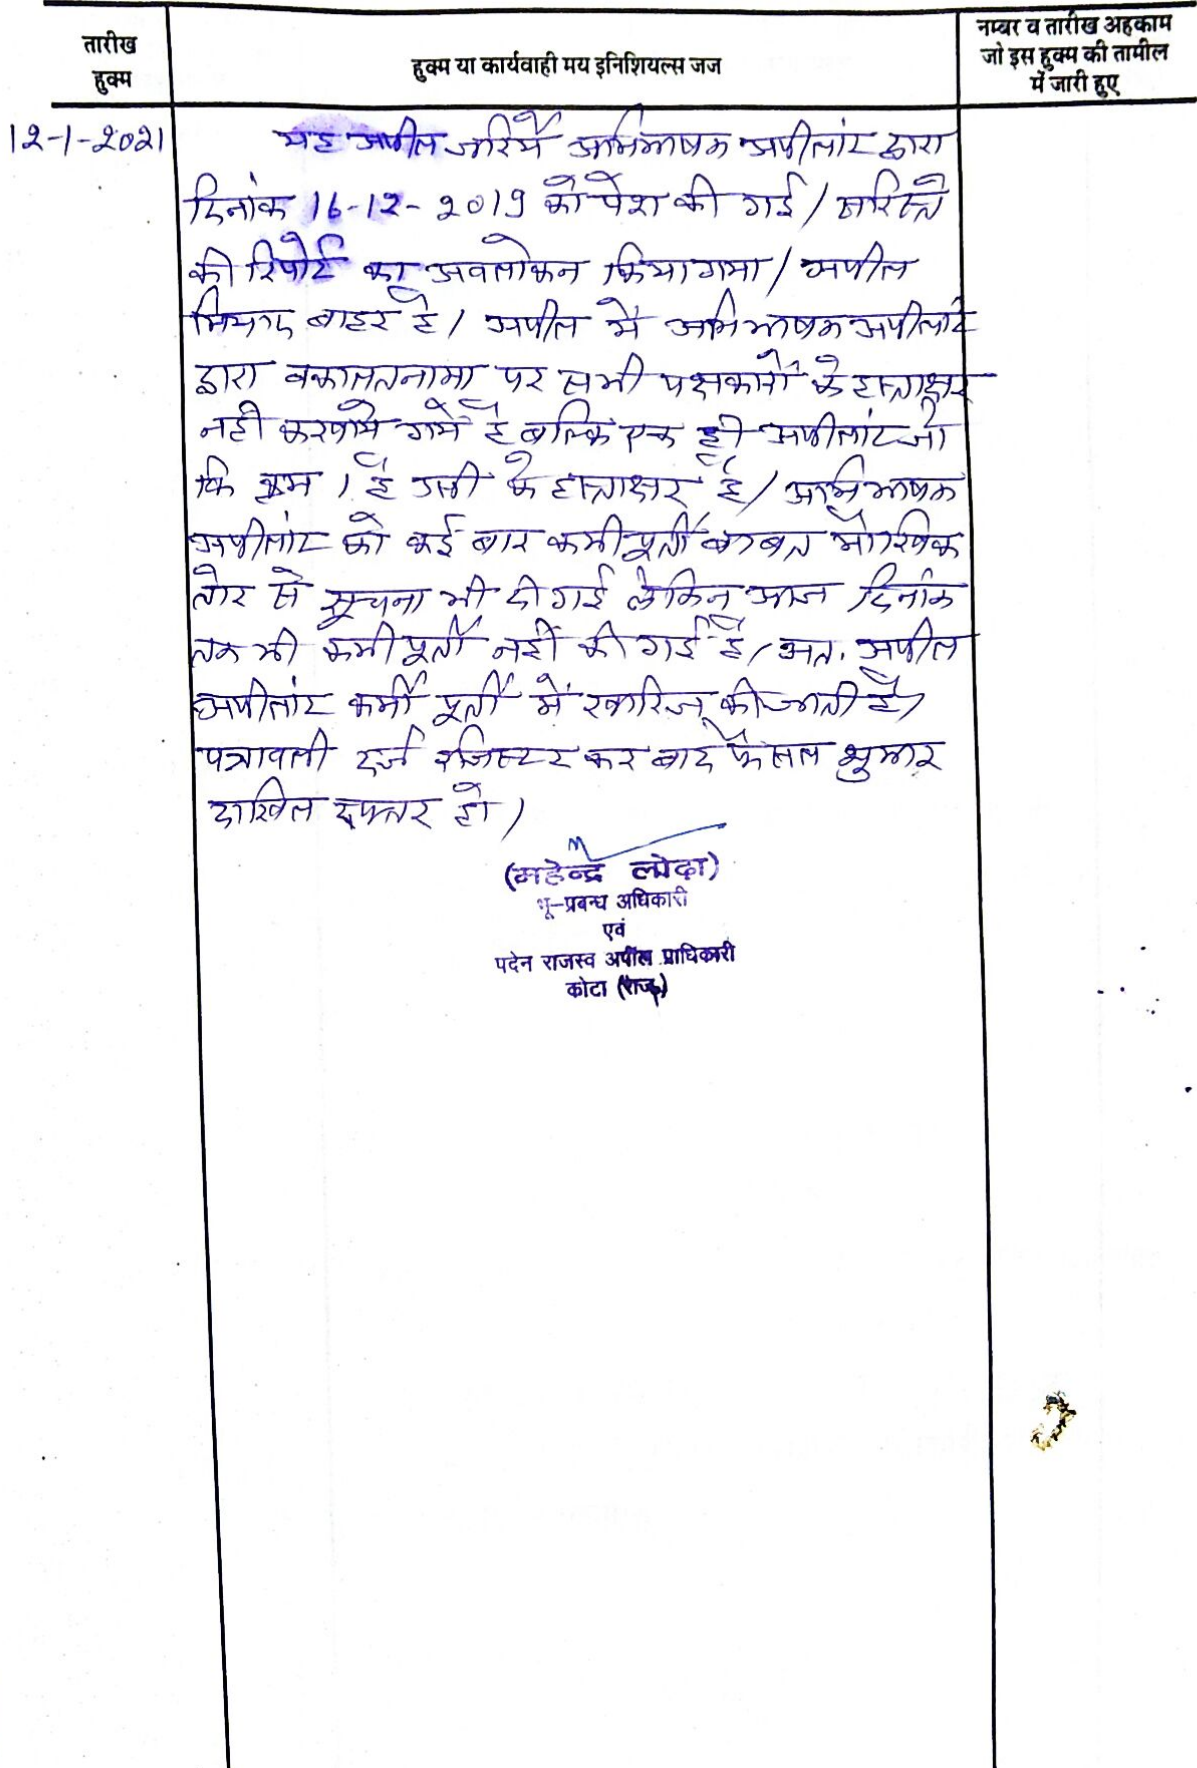 तारीख
हुक्म
हुक्म या कार्यवाही मय इनिशियल्स जज
नम्बर व तारीख अहकाम
जो इस हुक्म की तामील
में जारी हुए
12-1-2021
यह अपील जरिये अभिभाषक अपीलांट द्वारा
दिनांक 16-12-2019 को पेश की गई। सरिस्ते
की रिपोर्ट का अवलोकन किया गया। अपील
मियाद बाहर है। अपील में अभिभाषक अपीलांट
द्वारा वकालतनामा पर सभी पक्षकारों के हस्ताक्षर
नही करवाये गये है बल्कि एक ही अपीलांट जो
कि क्रम 1 है उसी के हस्ताक्षर है। अभिभाषक
अपीलांट को कई बार कमी पूर्ती बाबत मौखिक
तोर से सूचना भी दी गई लेकिन आज दिनांक
तक भी कमी पूर्ती नहीं की गई है। अतः अपील
अपीलांट कमी पूर्ती में खारिज की जाती है।
पत्रावली दर्ज रजिस्टर कर बाद फैसल शुमार
दाखिल दफ्तर हो।
(महेन्द्र लोढ़ा)
भू-प्रबन्ध अधिकारी
एवं
पदेन राजस्व अपील प्राधिकारी
कोटा (राज०)